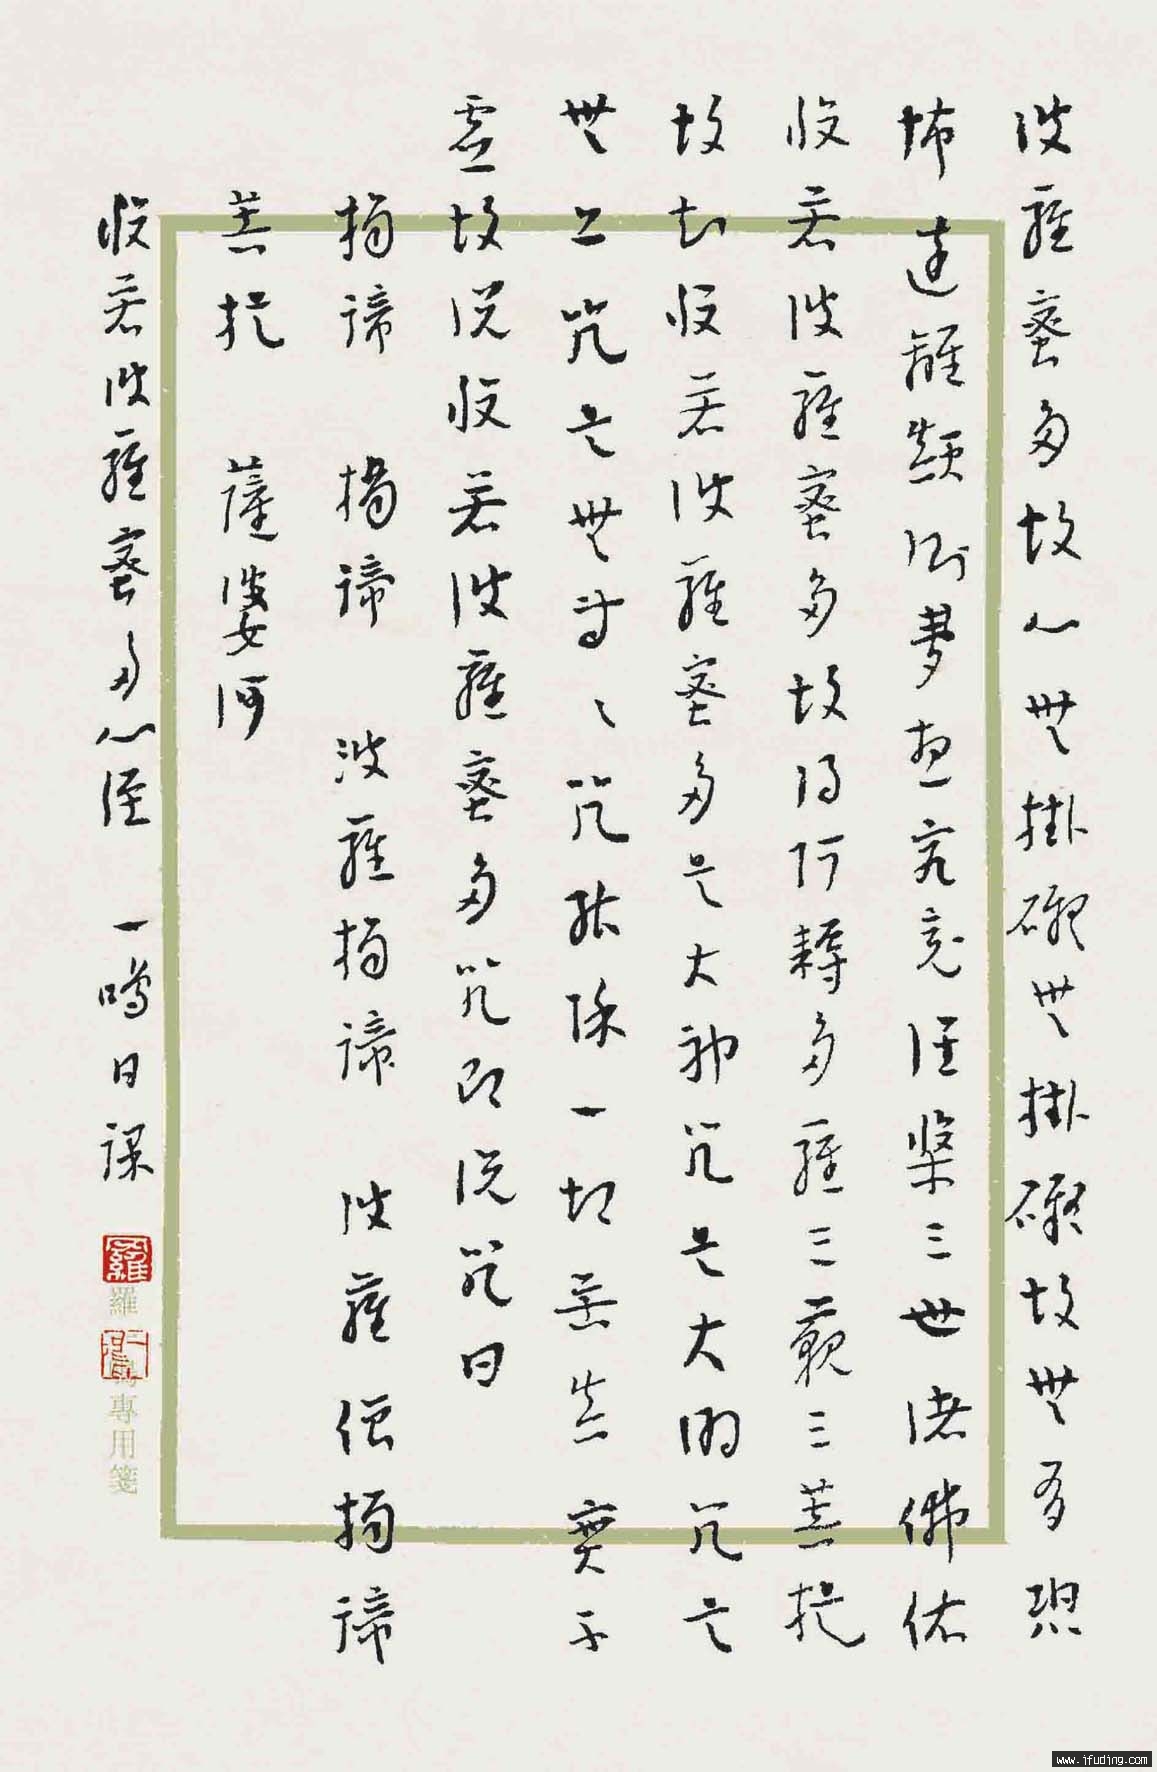 波羅蜜多故心無掛礙無掛礙故無有恐
怖遠離顛倒夢想究竟涅槃三世諸佛依
般若波羅蜜多故得阿耨多羅三藐三菩提
故知般若波羅蜜多是大神咒是大明咒是
無上咒是無等々咒能除一切苦真實不
虛故說般若波羅蜜多咒即說咒曰
揭諦 揭諦 波羅揭諦 波羅僧揭諦
菩提 薩婆訶
般若波羅蜜多心經 一鳴日課
羅
羅一鳴專用箋
www.ifuding.com